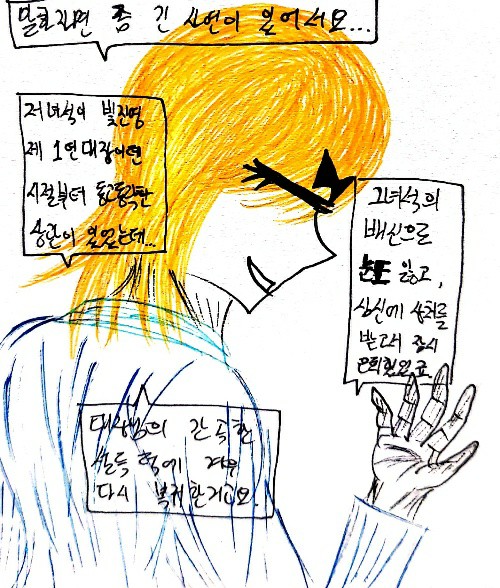 말하자면 좀 긴 사연이 있어서요...
저녀석이 빛진영
제 1연대장이던
시절부터 동고동락한
상관이 있었는데...
그녀석의
배신으로
눈도 잃고,
심신에 상처를
받고서 잠시
은퇴했었죠.
대장님의 간곡한
설득 덕에 겨우
다시 복귀한거고요.